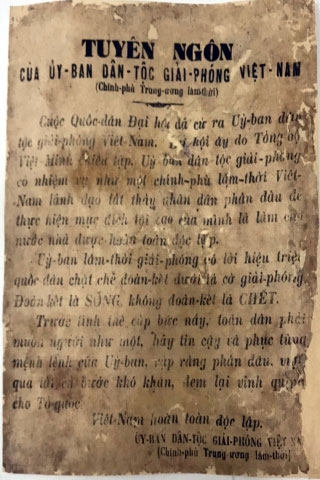 TUYÊN NGÔN
CỦA ỦY-BAN DÂN-TỘC GIẢI-PHÓNG VIỆT-NAM
(Chính-phủ Trung-ương lâm-thời)
Cuộc Quốc-dân Đại hội đã cử ra Uỷ-ban dân
tộc giải-phóng Việt-Nam. hội ấy do Tổng bộ
Việt-Minh triệu tập. Uỷ ban dân-tộc giải-phóng
có nhiệm vụ như một chính-phủ lâm-thời Việt-
Nam lãnh đạo tất thảy nhân dân phấn đấu để
thực hiện mục đích tối cao của mình là làm cho
nước nhà được hoàn toàn độc lập.
Uỷ-ban lâm-thời giải-phóng có lời hiệu triệu
quốc dân chặt chẽ đoàn-kết dưới lá cờ giải-phóng.
Đoàn-kết là SỐNG, không đoàn-kết là CHẾT.
Trước tình thế cấp bức này, toàn dân phải
muôn người như một, hãy tin cậy và phục tùng
mệnh lệnh của Uỷ-ban, cắp răng phấn đấu, vượt
qua bước khó khăn, đem lại vinh quang
cho Tổ quốc.
Việt-Nam hoàn toàn độc lập.
ỦY-BAN DÂN-TỘC GIẢI-PHÓNG VIỆT NA
(Chính-phủ Trung-ương lâm-thời)